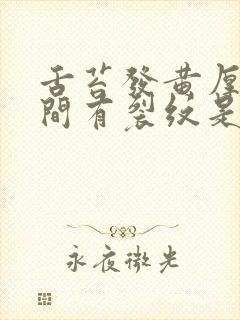 舌苔發黃厚
間有裂紋是
永夜微光